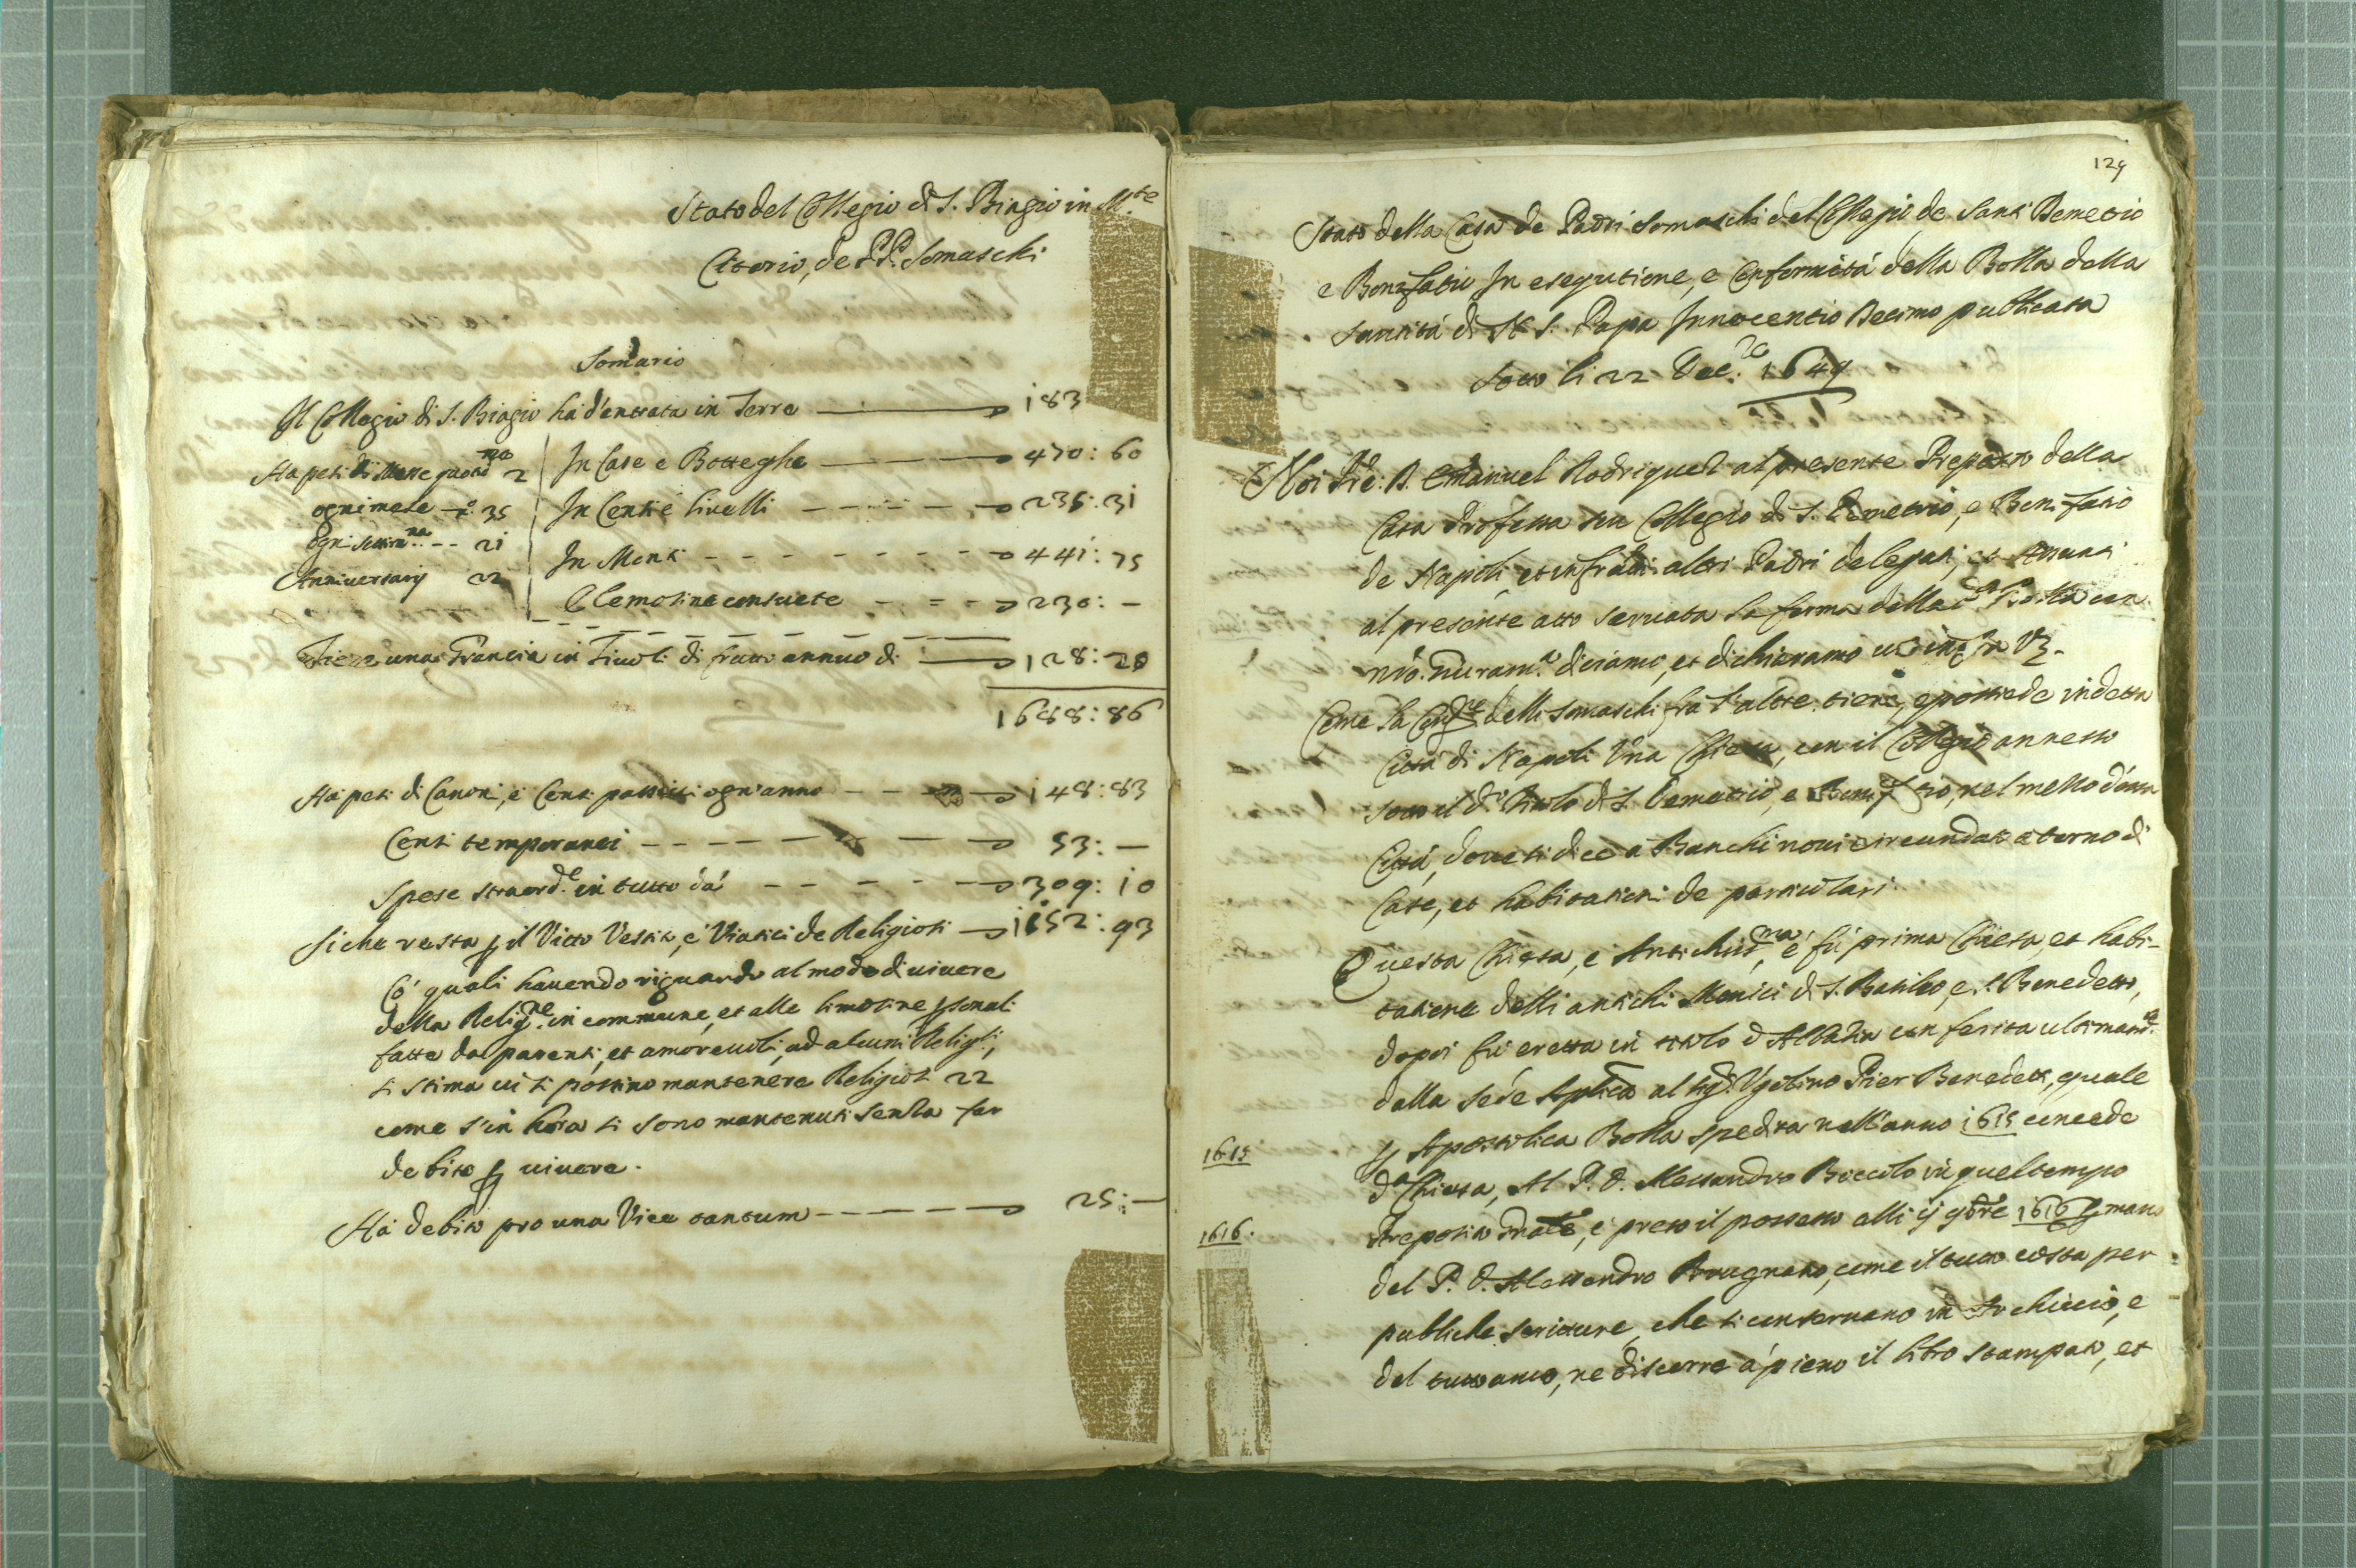 Stato del Collegio di S. Biagio in M.te
Citorio, de PP. Somaschi
Somario
Il Collegio di S. Biagio ha d'entrata in Terre 183
Ha pesi di Messe quotid.ne 2
ogni mese n.o 35
ogni settim.na 21
Anniversarij 22
In Case e Botteghe 470: 60
In Censi e livelli 235: 31
In Monti 441: 75
Elemosine consuete 230: —
Tiene una Grancia in Tivoli di frutto annuo di 128: 20
1688: 86
Ha pesi di Canoni, e Censi passivi ogn'anno 148: 83
Censi temporanei 53: —
Spese straord.e in tutto dà 309: 10
Siche resta p il Vitto Vestito, e Viatici de Religiosi 1152: 93
Co' quali havendo riguardo al modo di vivere
della Relig.ne in commune, et alle limosine psonali
fatte da parenti, et amorevoli, ad alcuni Religi,
si stima vi si possino mantenere Religiosi 22
come s'in hora si sono mantenuti senza far
debito p vivere.
Ha debito pro una Vice tantum 25: —
129
Stato della Casa de Padri Somaschi del Collegio de Santi Demetrio
e Bonifatio In esegutione, e Conformità della Bolla della
Santità di N. S. Papa Innocentio Decimo publicata
sotto li 22 Xbre 1649
Noi D. Emanuel Rodriquez al presente Preposto della
Casa Professa seu Collegio di S. Demetrio, e Bonifatio
de Napoli, et infratti altri Padri delegati, et Assunti
al presente atto servata la forma della d.a Bolla con
nro. giuram.to diciamo, et dichiaramo ut infra Vz.
Come la Cong.ne delli Somaschi fra l'altre tiene, e possiede in detta
Città di Napoli Una Chiesa, con il Collegio annesso
sotto il d.o titolo di S. Demetrio, e Bonifatio, nel mezzo d'essa
Città, dove si dice a Banchi novi circundato a torno di
Case, et habitationi de particulari.
Questa Chiesa, è Antichiss.ma, e fù prima Chiesa, et habi-
tatione delli antichi Monici di S. Basilio, e S. Benedetto,
dopoi fù eretta in titolo d'Abbatia conferita ultimam.te
dalla sede Aplica al Sig.r Ugolino Pier Benedetti, quale
1615
p Apostolica Bolla spedita nell'anno 1615 concede
d.a Chiesa, Al P. D. Alessandro Boccolo in quel tempo
1616.
Preposito gnale, e preso il possesso alli ij 9bre 1616 p mano
del P. D. Alessandro Brugnano, come il tutto costa per
publiche scritture, che si conservano in Archivio, e
del tutto anco, ne discorre à pieno il libro stampato, et